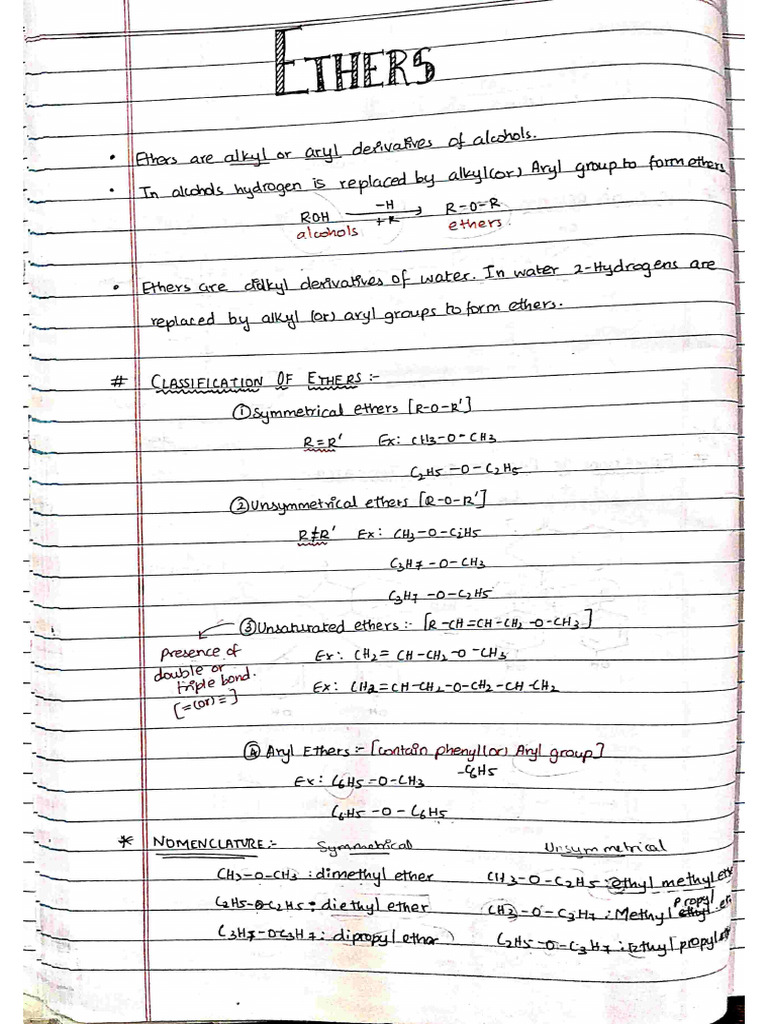 ETHERS
• Ethers are alkyl or aryl derivatives of alcohols.
• In alcohols hydrogen is replaced by alkyl(or) Aryl group to form ethers
ROH —-H/+R→ R-O-R
alcohols ethers.
• Ethers are dialkyl derivatives of water. In water 2-Hydrogens are
replaced by alkyl (or) aryl groups to form ethers.
# CLASSIFICATION OF ETHERS:-
① Symmetrical ethers [R-O-R']
R=R' Ex: CH3-O-CH3
C2H5-O-C2H5
② Unsymmetrical ethers [R-O-R']
R≠R' Ex: CH3-O-C2H5
C3H7-O-CH3
C3H7-O-C2H5
③ Unsaturated ethers:- [R-CH=CH-CH2-O-CH3]
Presence of
double or
triple bond.
[=(or)≡]
Ex: CH2=CH-CH2-O-CH3
Ex: CH2=CH-CH2-O-CH2-CH-CH2
④ Aryl Ethers:- [contain phenyl(or) Aryl group]
-C6H5
Ex: C6H5-O-CH3
C6H5-O-C6H5
* NOMENCLATURE:- Symmetrical Unsymmetrical
CH3-O-CH3: dimethyl ether CH3-O-C2H5: ethyl methyl
C2H5-O-C2H5: diethyl ether CH3-O-C3H7: Methyl propyl
C3H7-O-C3H7: dipropyl ether C2H5-O-C3H7: Ethyl propyl